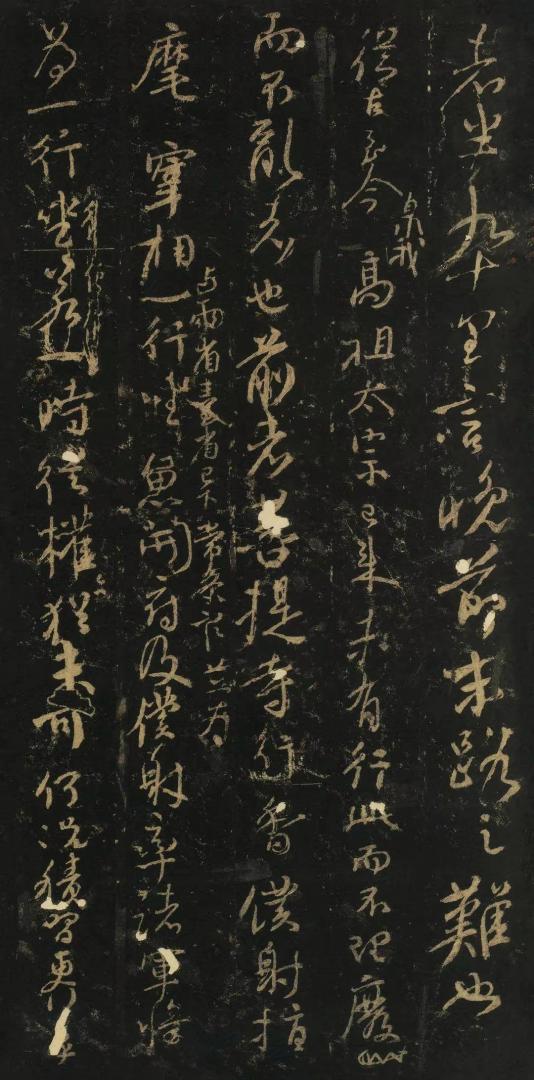 者半九十里言晚節末路之難也
從古至今泉我高祖太宗已来未有行此而不理廢
而不亂者也前者菩提寺行香僕射指
麾宰相与兩省臺省已下常參官並為一行坐魚開府及僕射率諸軍將
為一行坐若一時從權亦猶未可何況積習更行